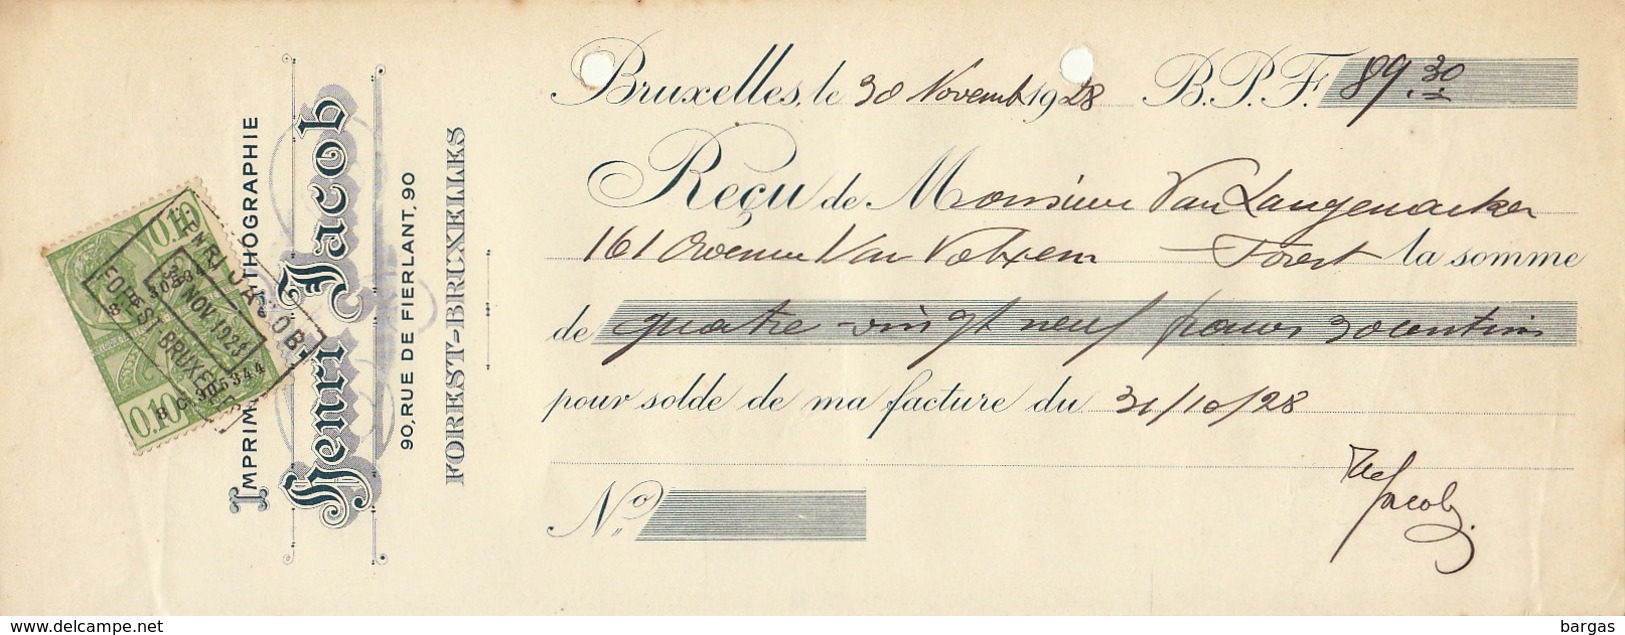 IMPRIM THOGRAPHIE
Henri Jacob
90, RUE DE FIERLANT, 90
FOREST-BRUXELLES
0.10
HENRI JACOB
30 NOV 1928
FOREST-BRUXELLES
0.10
Bruxelles, le 30 Novemb 1928 B.P.F. 89.30
Reçu de Monsieur Van Langenacker
161 Avenue Van Volxem Forest la somme
de quatre vingt neuf francs 30 centimes
pour solde de ma facture du 31/10/28
Jacob
N°
www.delcampe.net
bargas